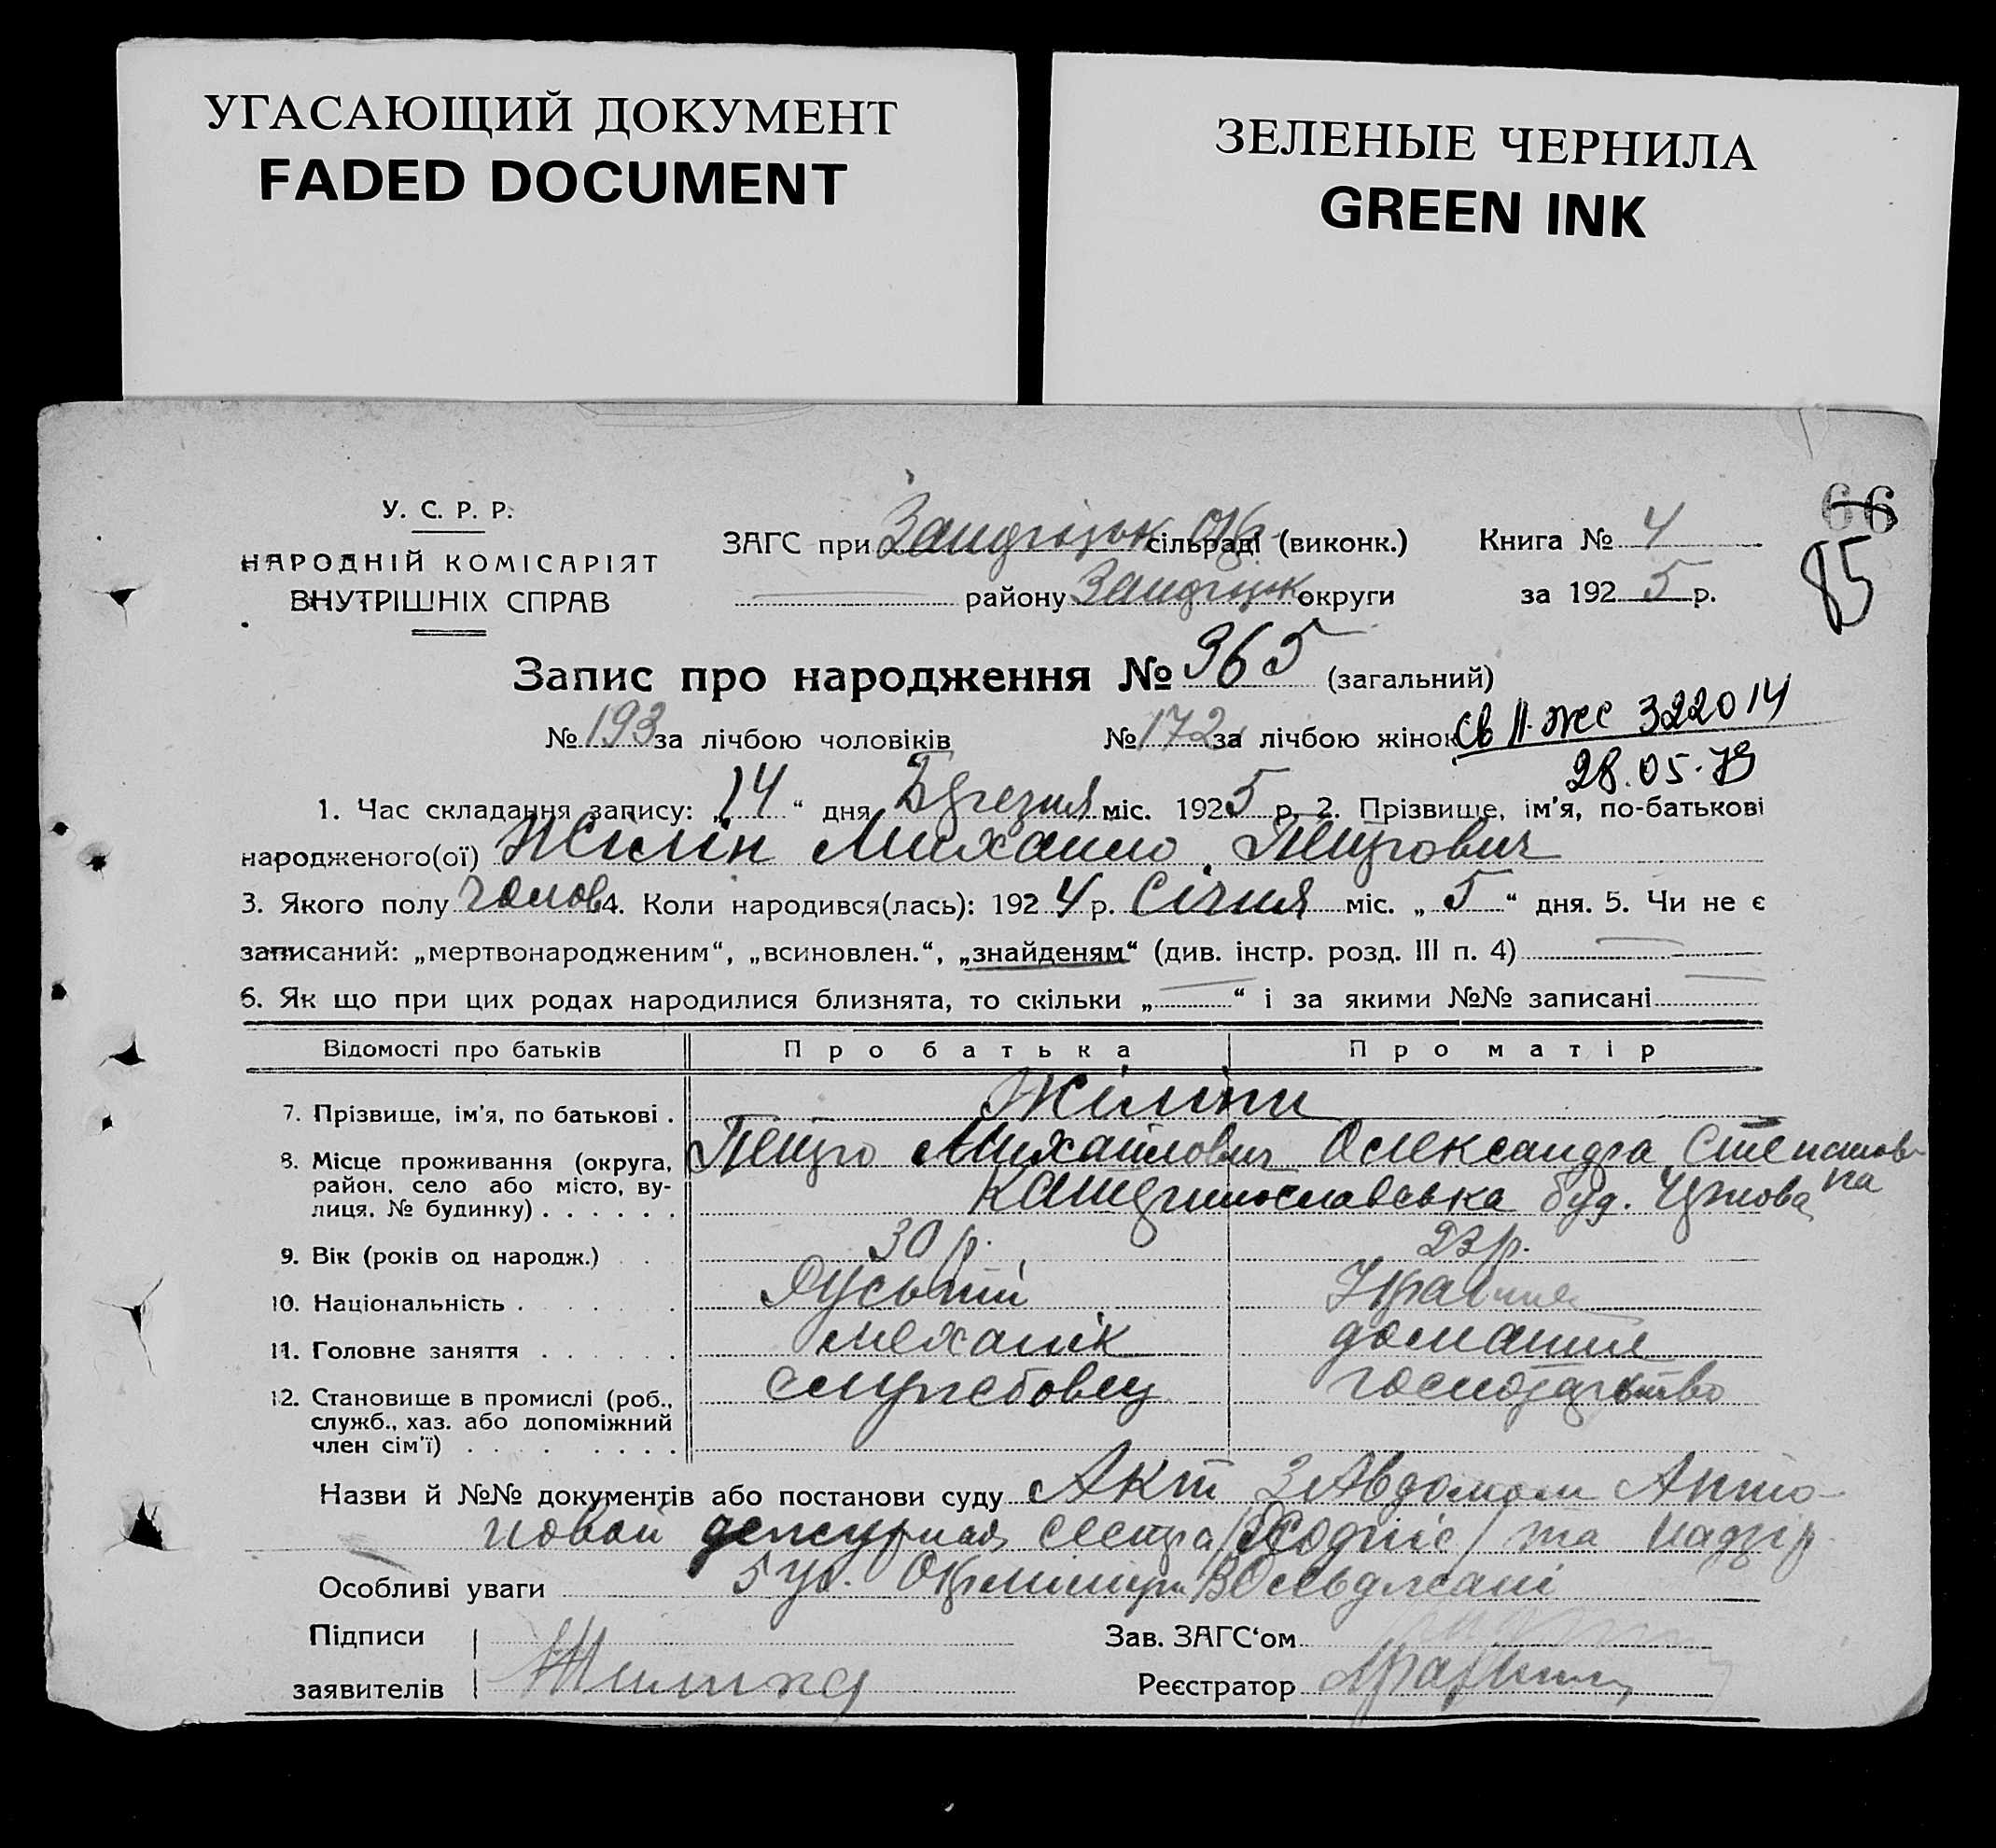 УГАСАЮЩИЙ ДОКУМЕНТ
FADED DOCUMENT
ЗЕЛЕНЫЕ ЧЕРНИЛА
GREEN INK
66
85
У. С. Р. Р.
НАРОДНІЙ КОМІСАРІЯТ
ВНУТРІШНІХ СПРАВ
ЗАГС при сільраді (виконк.)
району округи
Книга № 4
за 1925 р.
Запис про народження № 365 (загальний)
№ 193 за лічбою чоловіків № 172 за лічбою жінок
Св II-ЖС 322014
28.05.79
1. Час складання запису: „14“ дня Березня міс. 1925 р. 2. Прізвище, ім'я, по-батькові
народженого(ої) Жилін Михайло Петрович
3. Якого полу чолов 4. Коли народився(лась): 1924 р. Січня міс. „5“ дня. 5. Чи не є
записаний: „мертвонародженим“, „всиновлен.“, „знайденям“ (див. інстр. розд. III п. 4)
6. Як що при цих родах народилися близнята, то скільки „ “ і за якими №№ записані
Відомості про батьків Про батька Про матір
7. Прізвище, ім'я, по батькові . Жіліни
Петро Михайлович Олександра Степановна
8. Місце проживання (округа, район, село або місто, вулиця, № будинку) . . . . . . Катеринославська буд.
9. Вік (років од народж.) . . 30 р. 23 р.
10. Національність . . . . . . Руський Українка
11. Головне заняття . . . . . . механік домашнє
12. Становище в промислі (роб., служб., хаз. або допоміжний член сім'ї) . . . . . . . . службовец господарство
Назви й №№ документів або постанови суду Акт Анто-
новой дежурная сестра та
Особливі уваги 5 уч.
Підписи
заявителів
Зав. ЗАГС'ом
Реєстратор